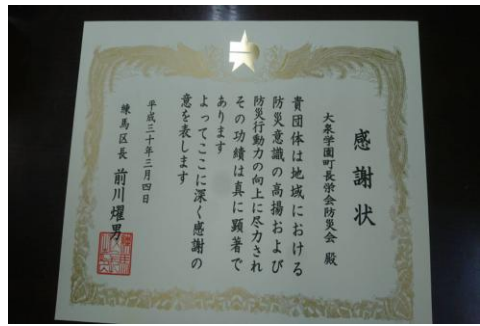 感謝状
大泉学園町長栄会防災会 殿
貴団体は地域における
防災意識の高揚および
防災行動力の向上に尽力され
その功績は真に顕著で
あります
よってここに深く感謝の
意を表します
平成三十年三月四日
練馬区長 前川燿男